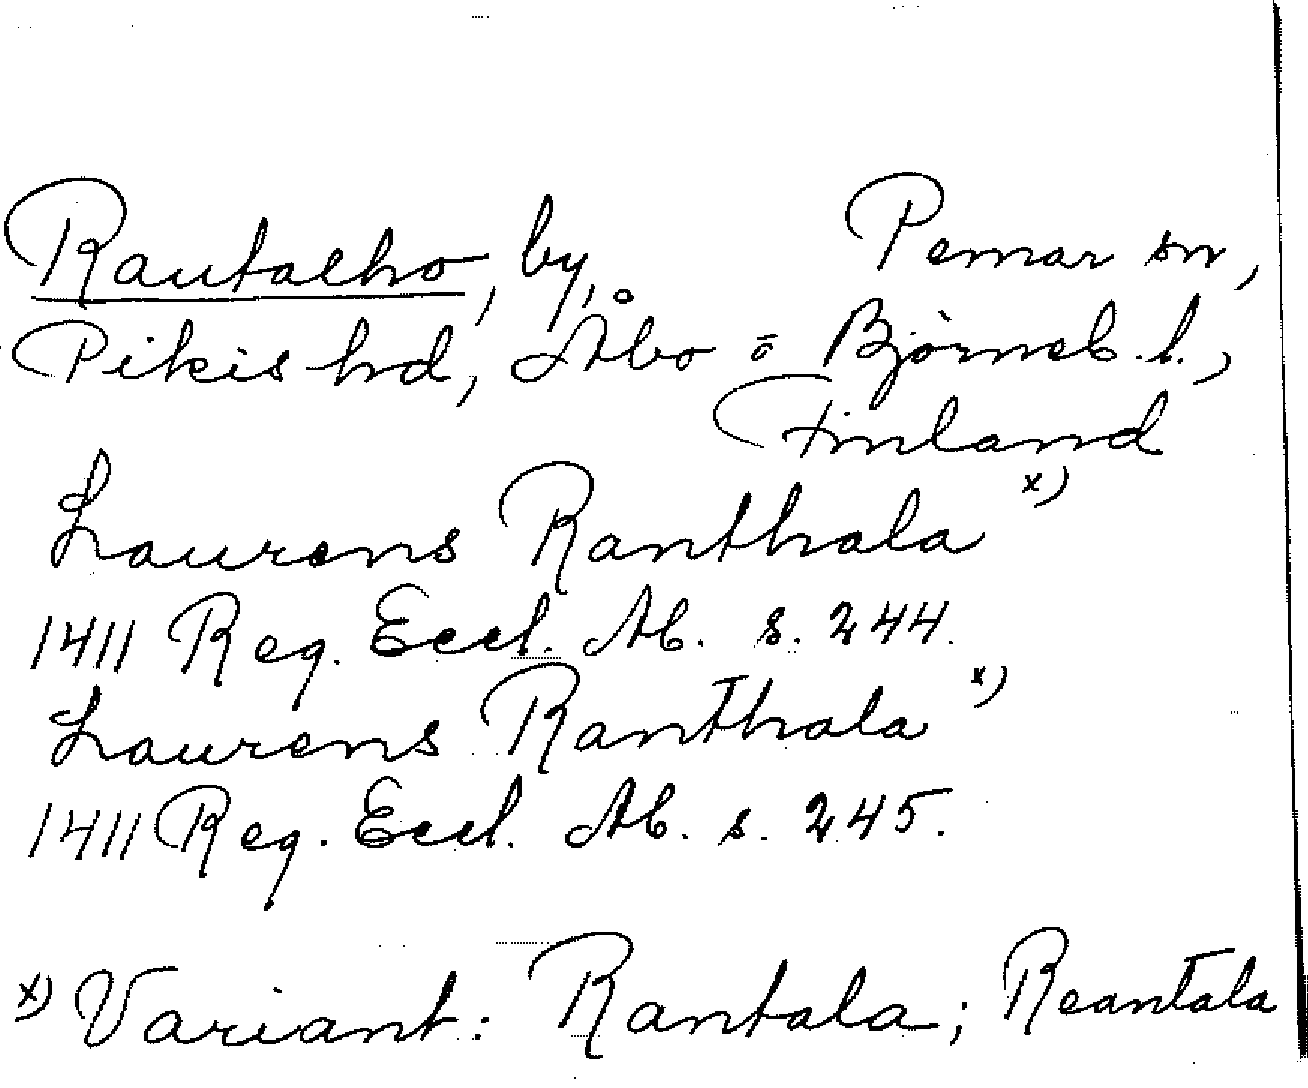 Rautalho, by, Pemar sn,
Pikis hd, Åbo o Björneb. l.,
Finland
Laurens Ranthala x)
1411 Reg. Eccl. Ab. s. 244.
Laurens Ranthala x)
1411 Reg. Eccl. Ab. s. 245.
x) Variant: Rantala; Reantala